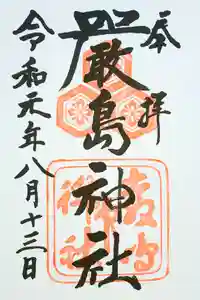 奉拝
厳島神社
令和元年八月十三日